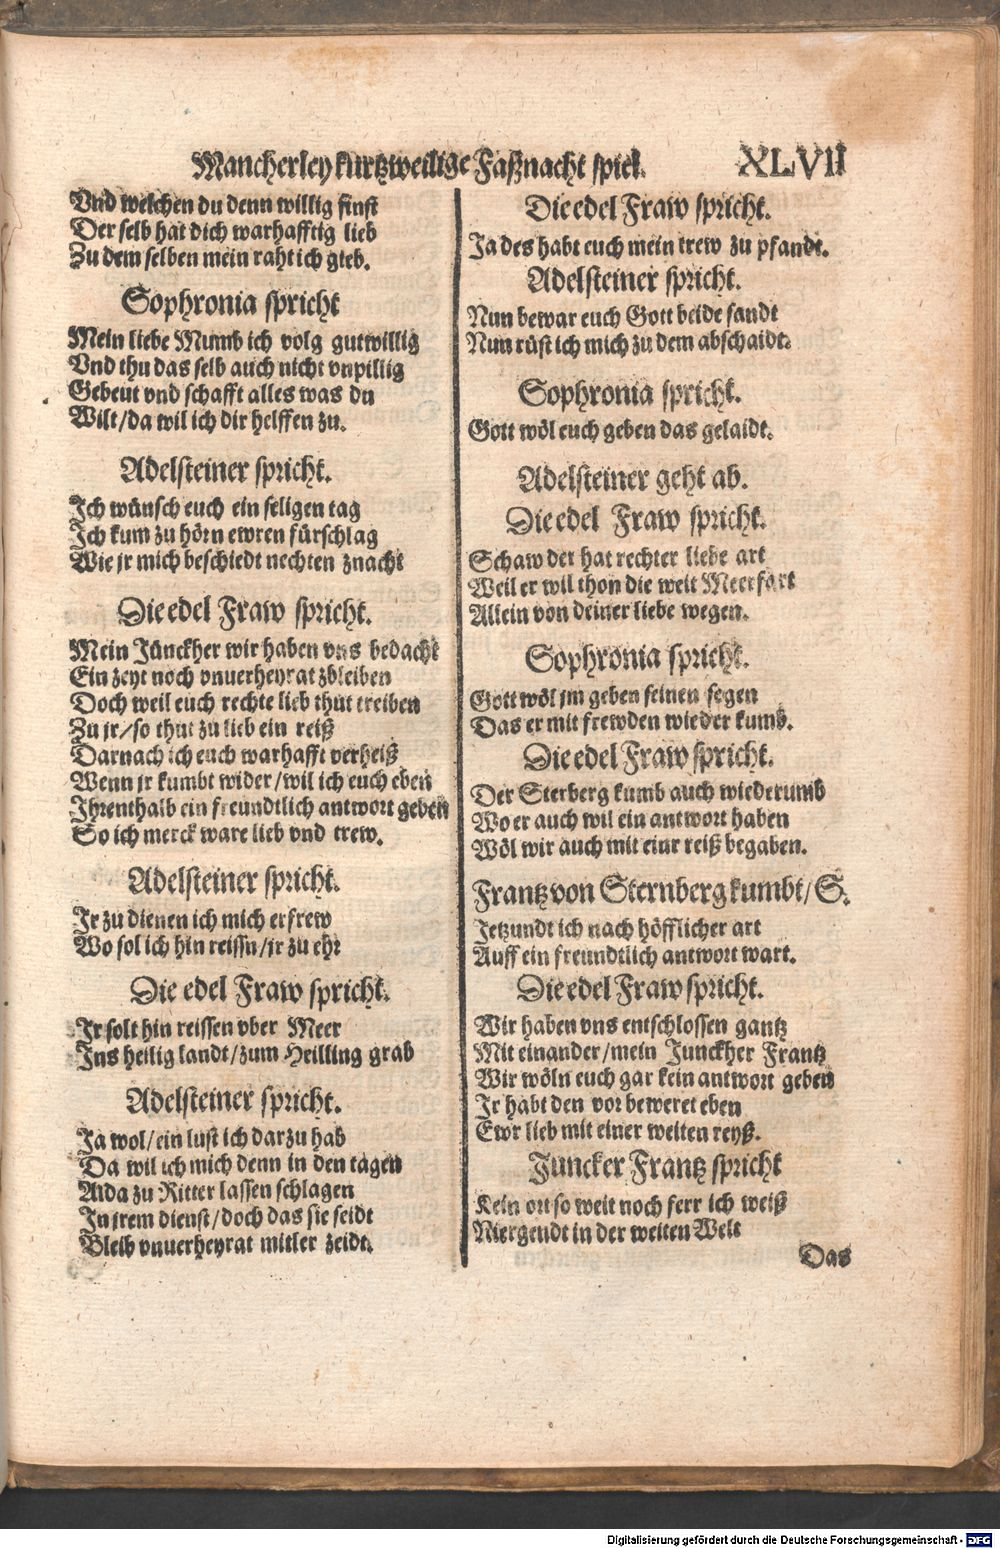 Mancherley kurtzweilige Faßnacht spiel. XLVII
Vnd welchen du denn willig finst
Der selb hat dich warhafftig lieb
Zu dem selben mein raht ich gieb.
Sophronia spricht
Mein liebe Mumb ich volg gutwillig
Vnd thu das selb auch nicht vnpillig
Gebeut vnd schafft alles was du
Wilt/da wil ich dir helffen zu.
Adelsteiner spricht.
Ich wünsch euch ein seligen tag
Ich kum zu hörn ewren fürschlag
Wie jr mich beschiedt nechten znacht
Die edel Fraw spricht.
Mein Jünckher wir haben vns bedacht
Ein zeyt noch vnuerheyrat zbleiben
Doch weil euch rechte lieb thut treiben
Zu jr/so thut zu lieb ein reiß
Darnach ich euch warhafft verheiß
Wenn jr kumbt wider/wil ich euch eben
Ihrenthalb ein freundtlich antwort geben
So ich merck ware lieb vnd trew.
Adelsteiner spricht.
Jr zu dienen ich mich erfrew
Wo sol ich hin reissn/jr zu ehr
Die edel Fraw spricht.
Jr solt hin reissen vber Meer
Ins heilig landt/zum Heilling grab
Adelsteiner spricht.
Ja wol/ein lust ich darzu hab
Da wil ich mich denn in den tagen
Alda zu Ritter lassen schlagen
In jrem dienst/doch das sie seidt
Bleib vnuerheyrat mitler zeidt.
Die edel Fraw spricht.
Ja des habt euch mein trew zu pfandt.
Adelsteiner spricht.
Nun bewar euch Gott beide sandt
Nun rüst ich mich zu dem abschaidt.
Sophronia spricht.
Gott wöl euch geben das gelaidt.
Adelsteiner geht ab.
Die edel Fraw spricht.
Schaw der hat rechter liebe art
Weil er wil thon die weit Meerfart
Allein von deiner liebe wegen.
Sophronia spricht.
Gott wöl jm geben seinen segen
Das er mit frewden wieder kumb.
Die edel Fraw spricht.
Der Sterberg kumb auch wiederumb
Wo er auch wil ein antwort haben
Wöl wir auch mit einr reiß begaben.
Frantz von Sternberg kumbt/S.
Jetzundt ich nach höfflicher art
Auff ein freundtlich antwort wart.
Die edel Fraw spricht.
Wir haben vns entschlossen gantz
Mit einander/mein Junckher Frantz
Wir wöln euch gar kein antwort geben
Jr habt den vor beweret eben
Ewr lieb mit einer weiten reyß.
Juncker Frantz spricht
Kein ort so weit noch ferr ich weiß
Niergendt in der weiten Welt
Das
Digitalisierung gefördert durch die Deutsche Forschungsgemeinschaft - DFG